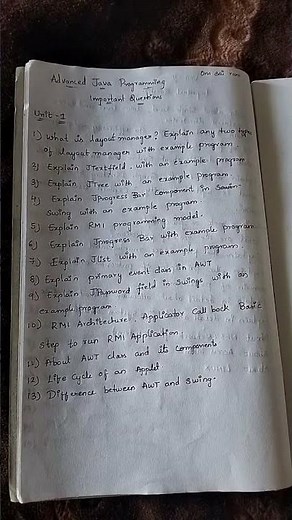 Advanced Java Programming
Important Questions
Unit - 1
1) What is layout manager? Explain any two types
of layout manager with example program.
2) Explain JTextfield. with an example program
3) Explain JTree with an example program.
4) Explain JProgress Bar Component in
Swing with an example program
5) Explain RMI programming model.
6) Explain Jprogress Bar with example program
7) Explain JList with an example program.
8) Explain primary event class in AWT
9) Explain JPassword field in swings with an
example program
10) RMI Architecture. Applicator Call back Basic
step to run RMI Application.
11) About AWT class and its components
12) Life Cycle of an Applet
13) Difference between AWT and swing.